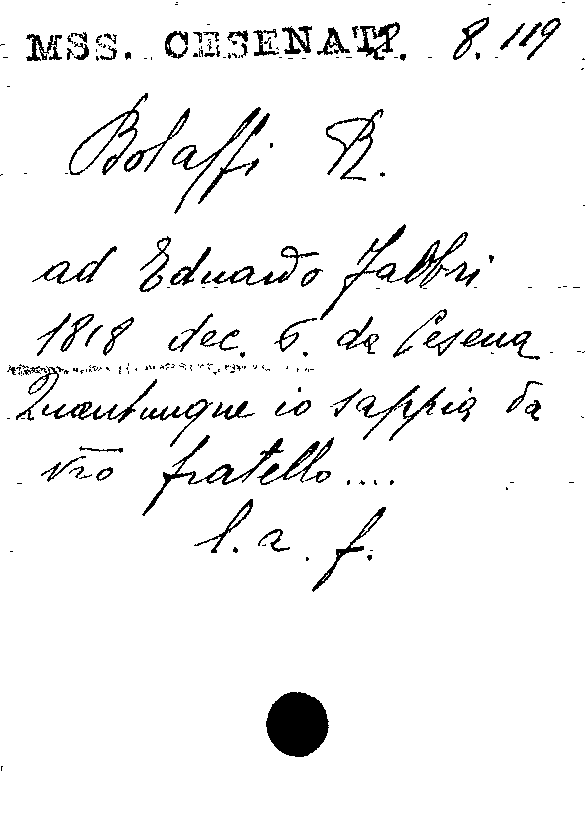 MSS. CESENATI. 8. 119
Bolaffi R.
ad Eduardo Fabbri
1818 dec. 6. da Cesena
Quantunque io sappia da
vro fratello....
l. a. f.